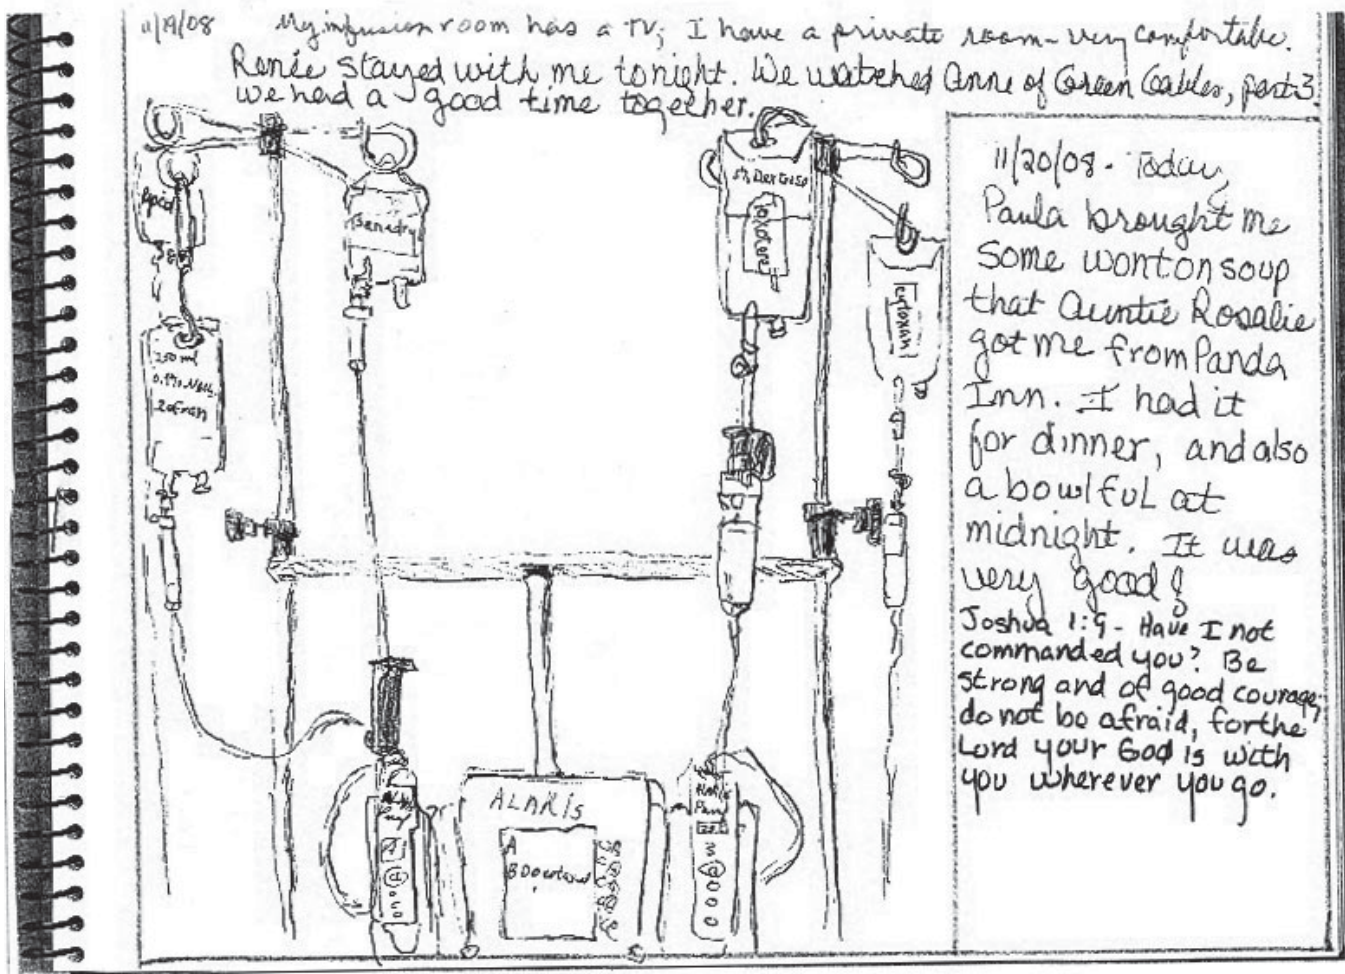 11/19/08 My infusion room has a TV; I have a private room - very comfortable.
Renée stayed with me tonight. We watched Anne of Green Gables, part 3.
we had a good time together.
Benadryl
5% Dextrose
Taxotere
cytoxan
250 ml
0.9% NaCl
Zofran
ALARIS
A
B
Alaris
Pump
11/20/08 - Today
Paula brought me
some wonton soup
that Auntie Rosalie
got me from Panda
Inn. I had it
for dinner, and also
a bowlful at
midnight. It was
very good!
Joshua 1:9 - Have I not
commanded you? Be
strong and of good courage;
do not be afraid, for the
Lord your God is with
you wherever you go.